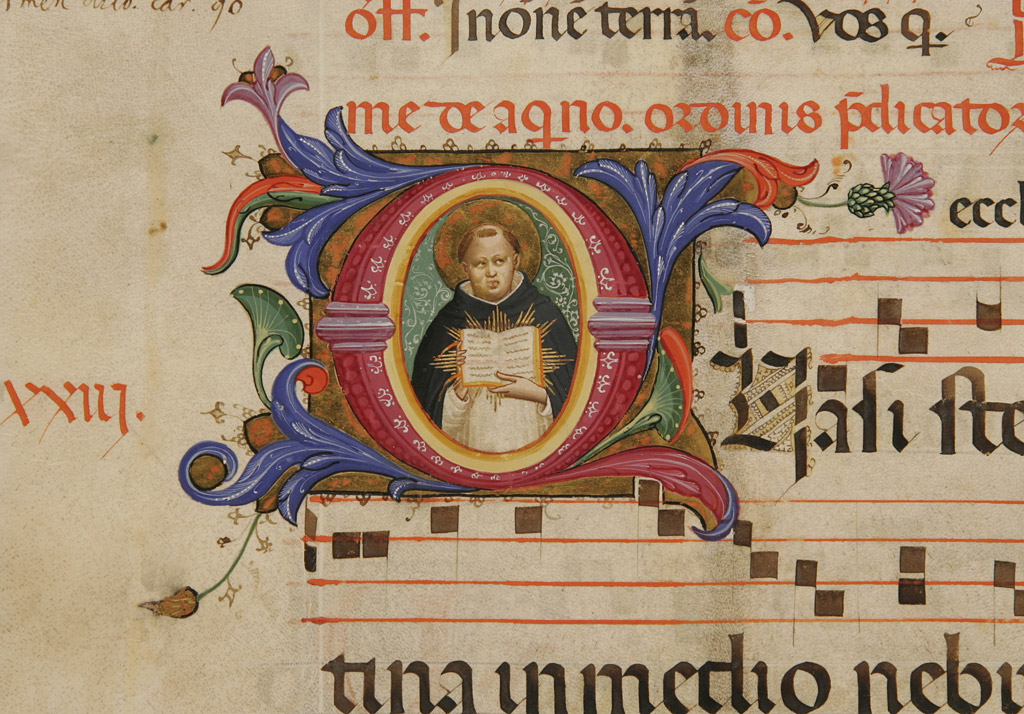 car. 90
off. In oñe terrā. cō. Vos q.
me de aqno. ordinis p̄dicator
eccl
XXIIJ.
QUasi ste
tina in medio nebu